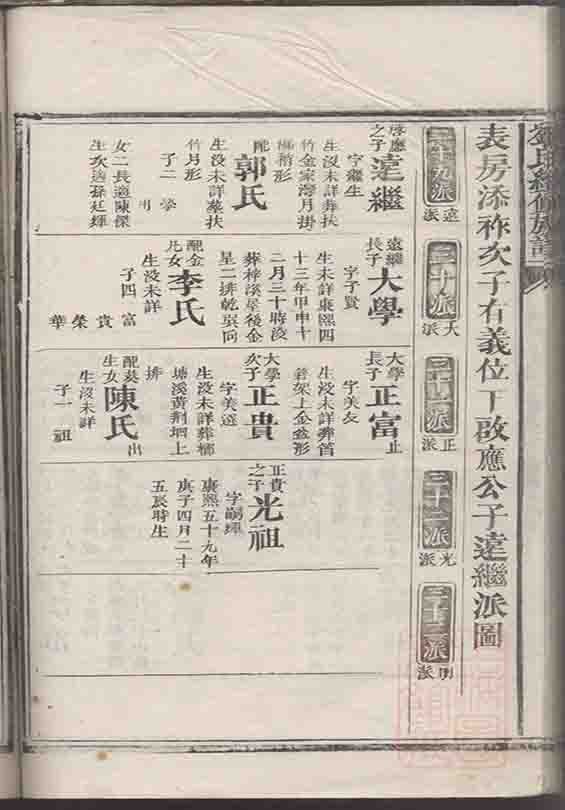 表房添祚次子右義位下啟應公子遠繼派圖
二十九派
遠派
三十派
大派
三十一派
正派
三十二派
光派
三十三派
啓應之子
遠繼
字繼生
生沒未詳葬扶
竹金家灣月掛
配
郭氏
生沒未詳墓扶
竹月形
子二 學
女二長適陳傑
生次適孫廷輝
遠繼長子
大學
字子賢
生未詳康熙四
十三年甲申十
二月三十時沒
葬梓溪屋後金
星二排乾巽向
配金兄女
李氏
生沒未詳
子四 富 貴 榮 華
大學長子
正富
止
字美友
生沒未詳葬笛
竹架上金盆形
大學次子
正貴
字美選
生沒未詳葬檽
塘溪黄荆堌上
排
配葵生女
陳氏
出
生沒未詳
子一 祖
正貴之子
光祖
康熙五十九年
庚子四月二十
五辰時生